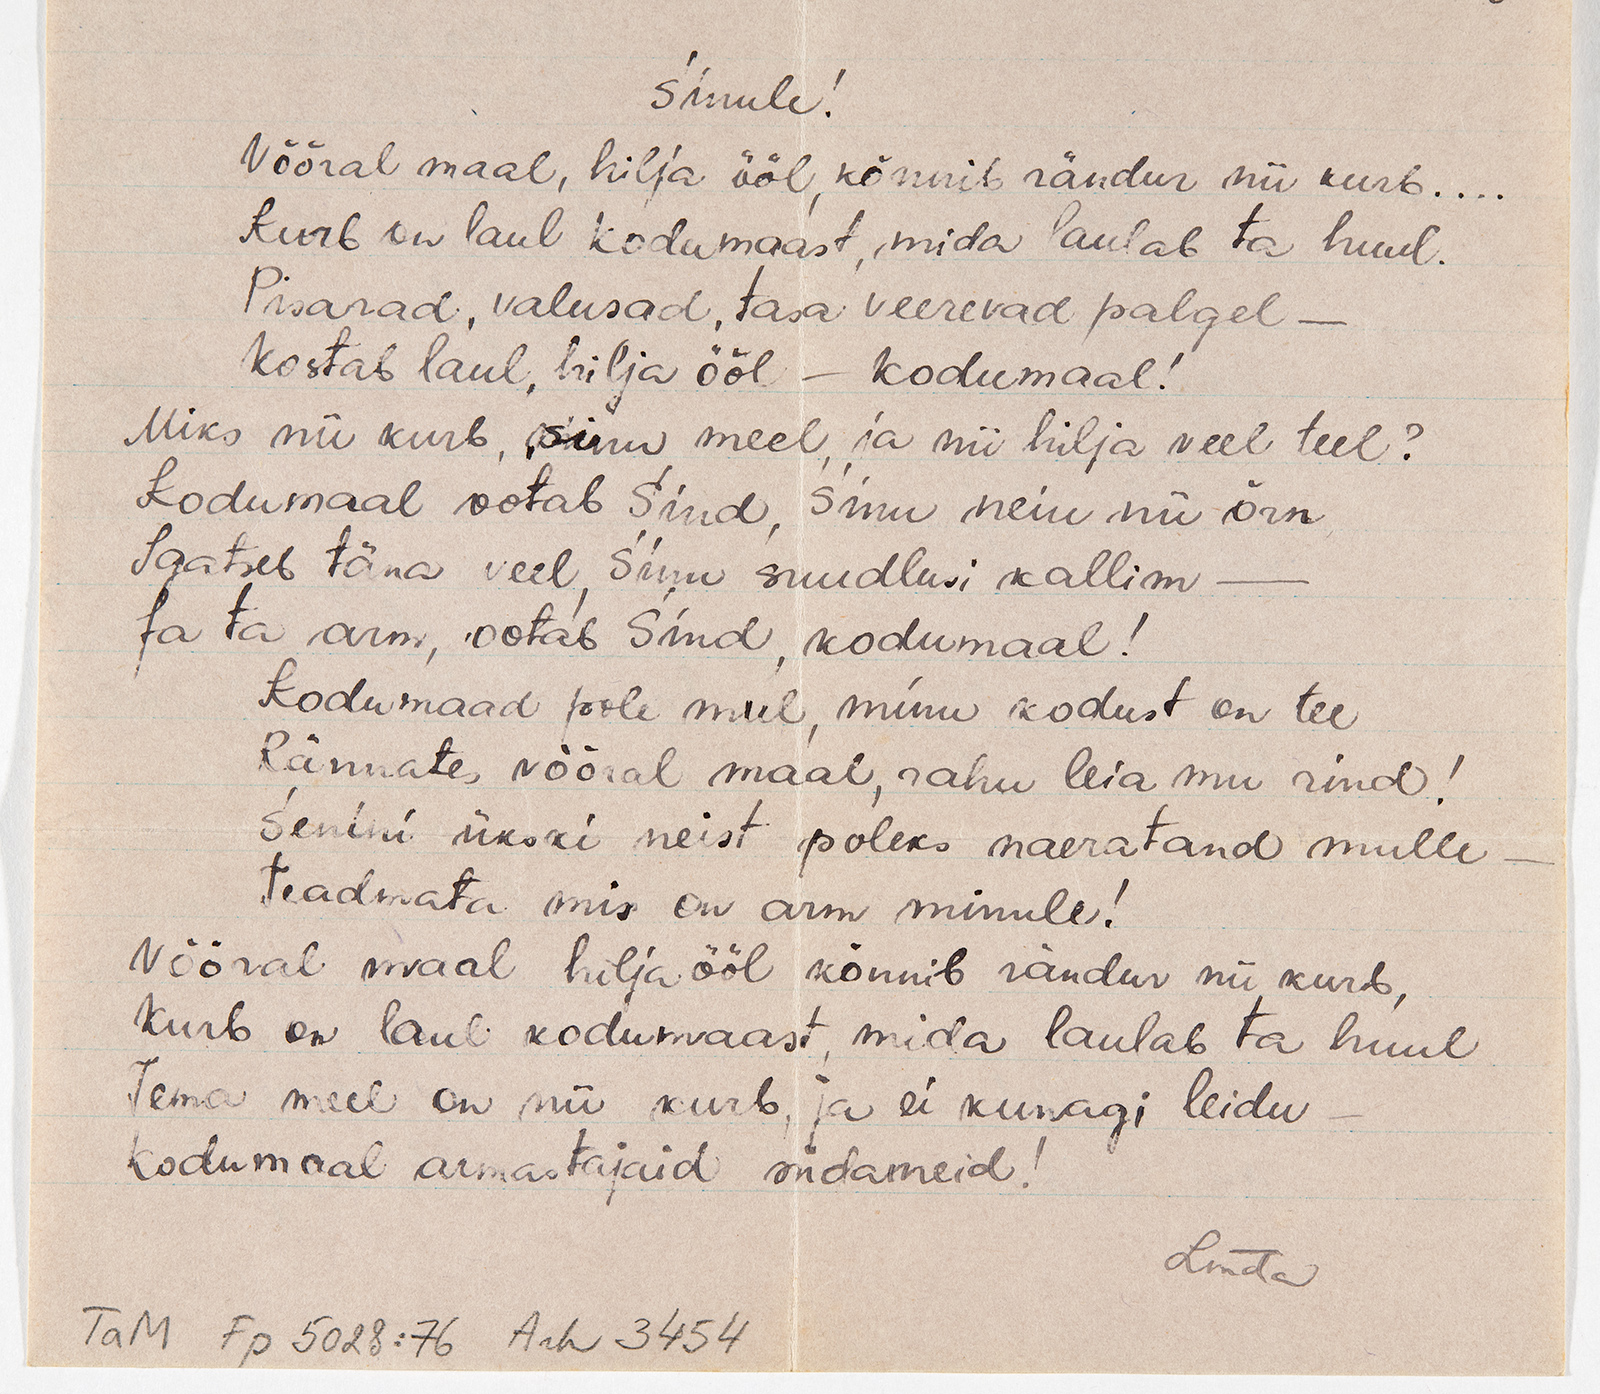 Sinule!
Vööral maal, hilja ööl, kõnnib rändur nii kurb....
Kurb on laul kodumaast, mida laulab ta huul.
Pisarad, valusad, tasa veerevad palgel —
Kostab laul, hilja ööl — kodumaal!
Miks nii kurb, sinu meel, ja nii hilja veel teel?
Kodumaal ootab Sind, Sinu neiu nii õrn,
Saatseb täna veel, Sinu suudlusi kallim —
Ja ta arm, ootab Sind, kodumaal!
Kodumaad pole mul, minu kodust on tee
Rännates vööral maal, rahu leia mu rind!
Senini ükski neist poleks naeratand mulle —
Teadmata mis on arm minule!
Vööral maal hilja ööl kõnnib rändur nii kurb,
Kurb on laul kodumaast, mida laulab ta huul
Tema meel on nii kurb, ja ei kunagi leidu —
Kodumaal armastajaid südameid!
Linda
TaM Fp 5028:76 Arh 3454